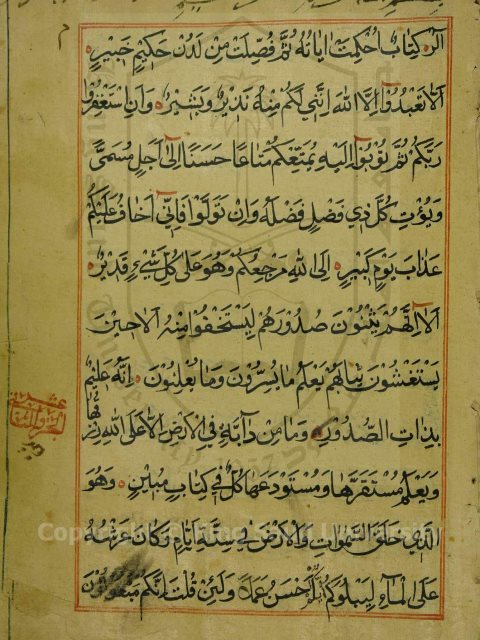 الر كتاب احكمت اياته ثم فصلت من لدن حكيم خبير
الا تعبدوا الا الله انني لكم منه نذير وبشير وان استغفروا
ربكم ثم توبوا اليه يمتعكم متاعا حسنا الى اجل مسمى
ويؤت كل ذي فضل فضله وان تولوا فاني اخاف عليكم
عذاب يوم كبير الى الله مرجعكم وهو على كل شيء قدير
الا انهم يثنون صدورهم ليستخفوا منه الا حين
يستغشون ثيابهم يعلم ما يسرون وما يعلنون انه عليم
بذات الصدور وما من دابة في الارض الا على الله رزقها
ويعلم مستقرها ومستودعها كل في كتاب مبين وهو
الذي خلق السموات والارض في ستة ايام وكان عرشه
على الماء ليبلوكم ايكم احسن عملا ولئن قلت انكم مبعوثون